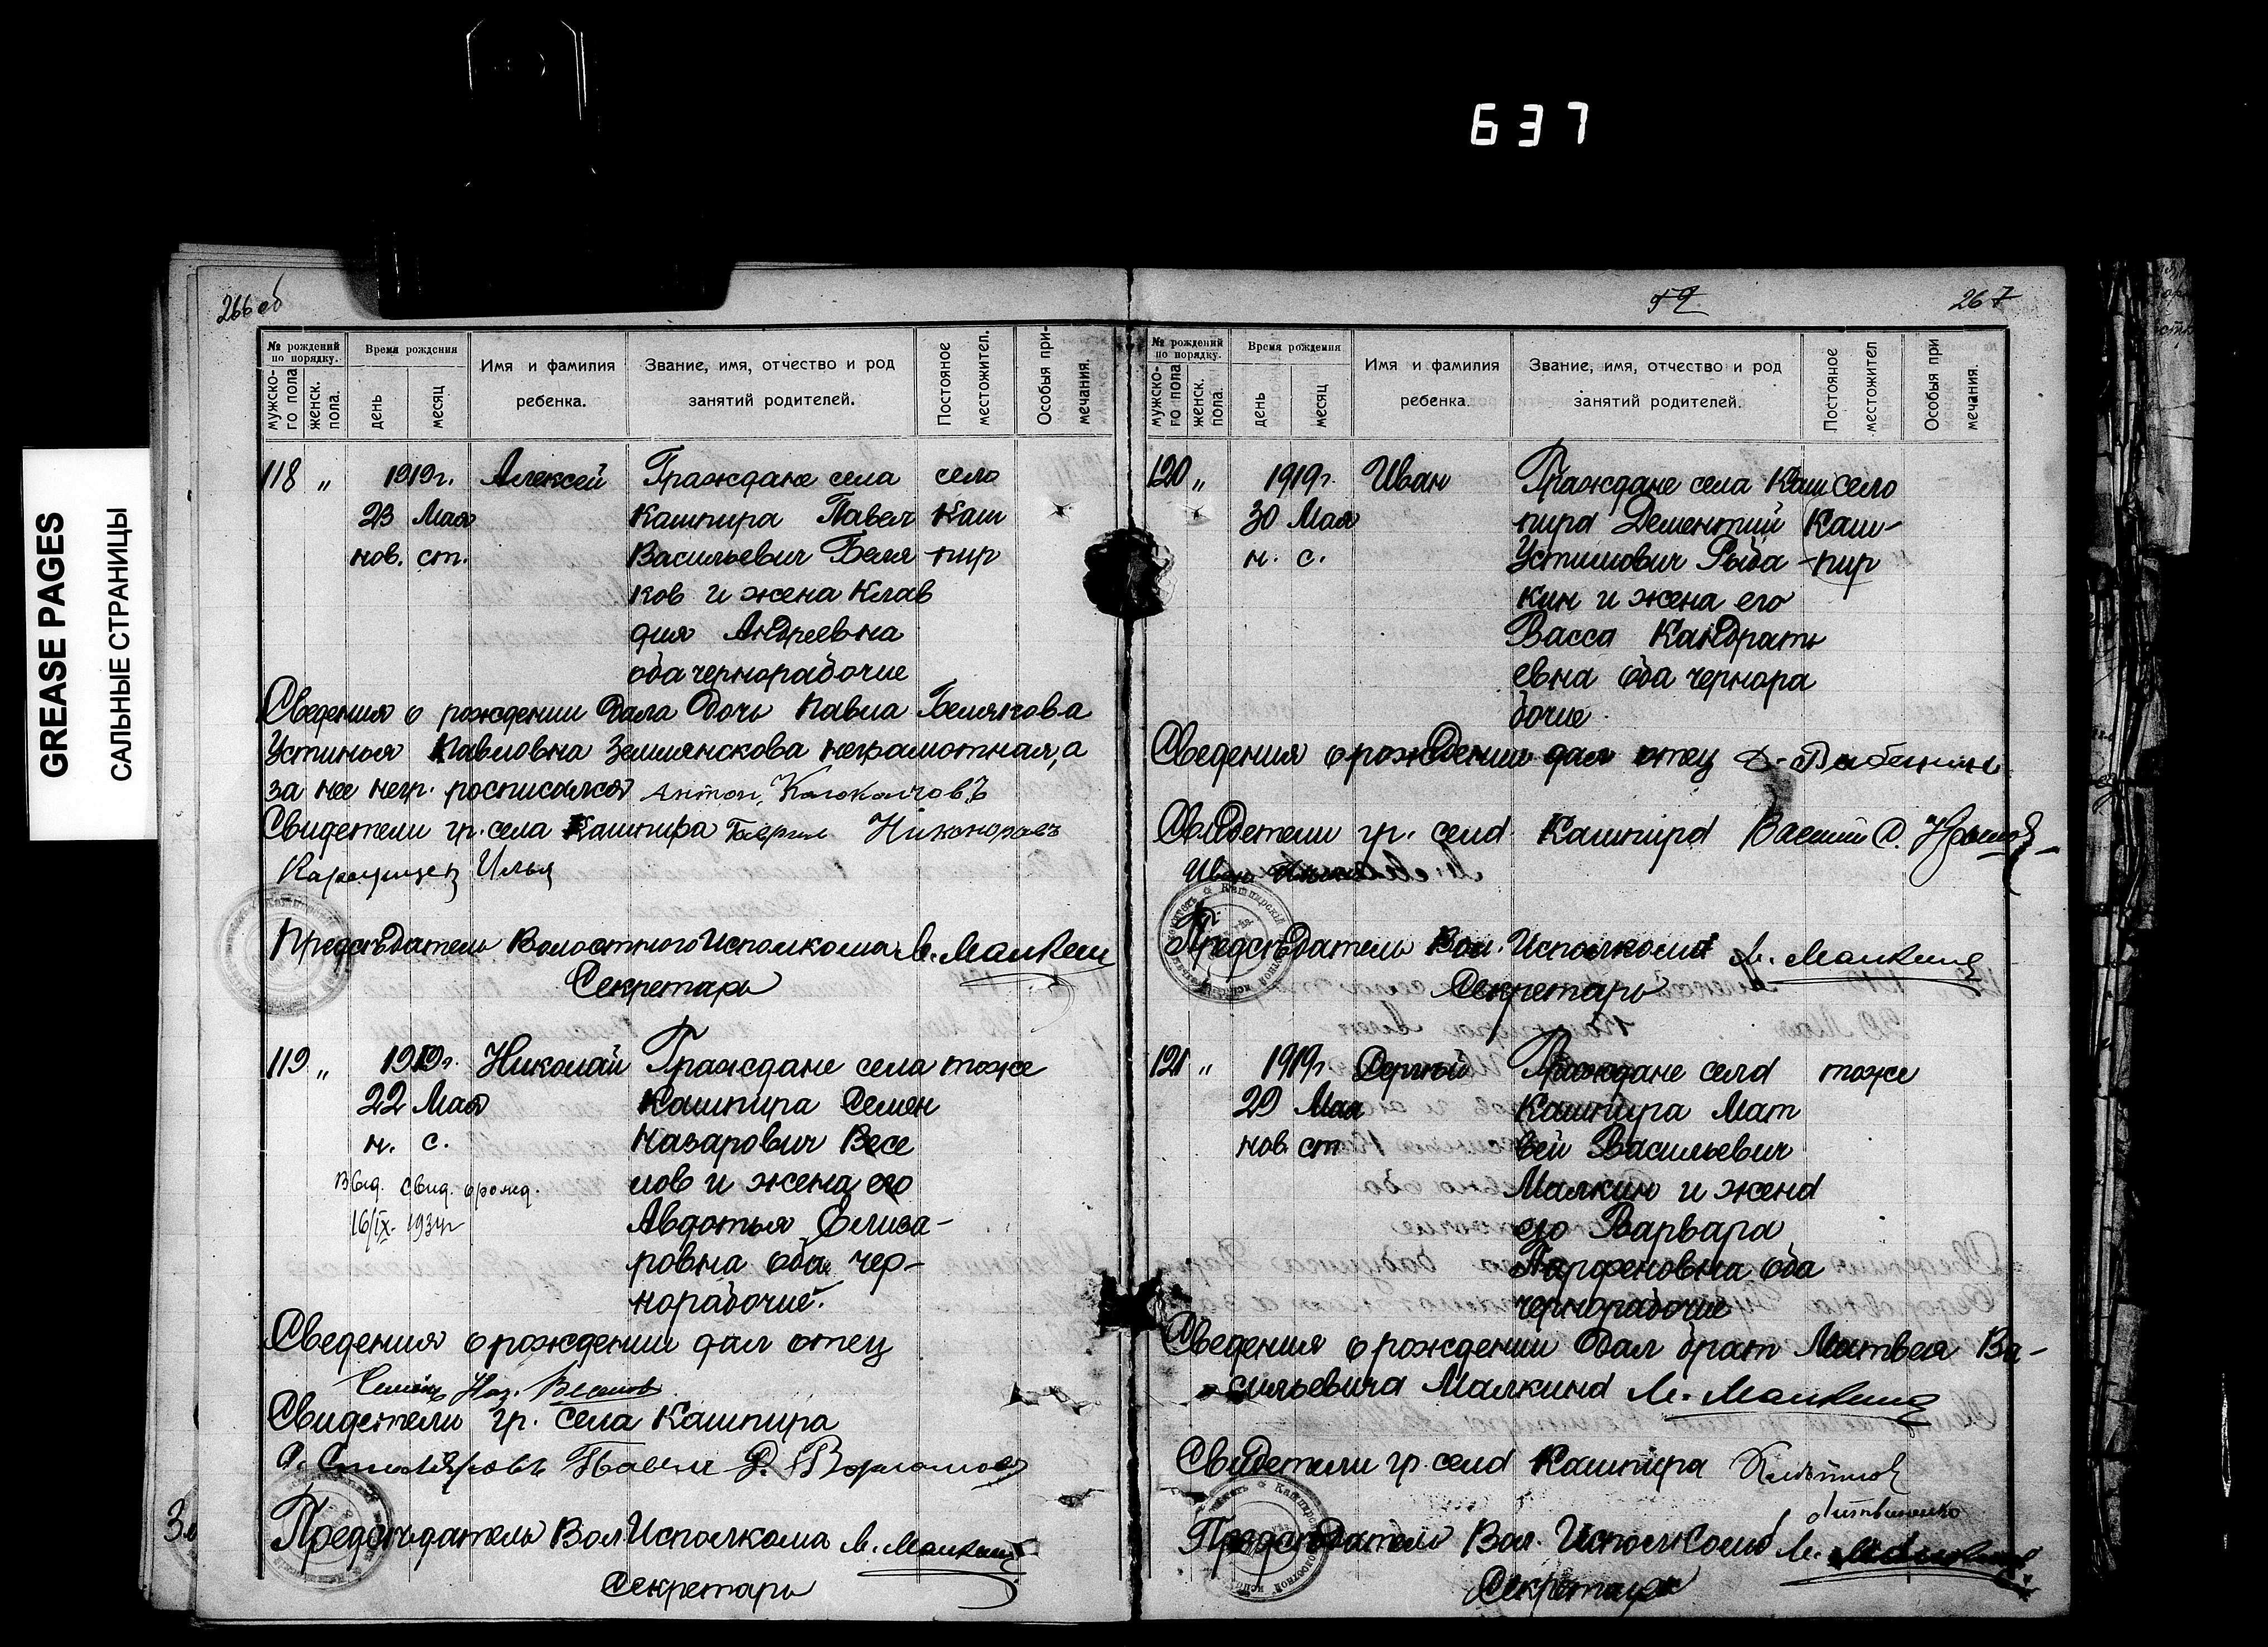 637
GREASE PAGES
САЛЬНЫЕ СТРАНИЦЫ
266 об
№ рождений по порядку.
мужско-го пола
женск. пола.
Время рождения
день
месяц
Имя и фамилия ребенка.
Звание, имя, отчество и род занятий родителей.
Постояное местожител.
Особыя при-мечания.
118 „ 1919г. Алексей Граждане села село
23 Мая Кашпира Павел Каш
нов. ст. Васильевич Беля -пир
ков и жена Клав
дия Андреевна
оба чернорабочие
Сведения о рождении дала дочь Павла Белякова
Устинья Павловна Землянскова неграмотная, а
за нее негр. росписался Антон
Свидетели гр. села Кашпира Никоноровъ
Илья
Председатель Волостного Исполкома М. Малкин
Секретарь
119 „ 1919г. Николай Граждане села тоже
22 Мая Кашпира Семен
н. с. Назарович Весе
Выд. свид. о рожд. лов и жена его
16/IX- 1934г Авдотья Елиза-
ровна оба чер-
норабочие.
Сведения о рождении дал отец
Наз.
Свидетели гр. села Кашпира
С. Столяровъ Павел
Председатель Вол Исполкома М. Малкин
Секретарь
267
№ рождений по порядку.
мужско-го пола
женск. пола.
Время рождения
день
месяц
Имя и фамилия ребенка.
Звание, имя, отчество и род занятий родителей.
Постояное местожител
Особыя при мечания.
120 „ 1919г. Иван Граждане села Каш село
30 Мая пира Дементий Каш-
н. с. Устимович Рыба -пир
кин и жена его
Васса Кандрать
евна оба чернора
бочие.
Сведения о рождении дал отец Д.
Свидетели гр. села Кашпира
Иван
Председатель Вол. Исполкома М. Малкин
Секретарь
121 „ 1919г. Сергей Граждане села тоже
29 Мая Кашпира Мат
нов. ст вей Васильевич
Малкин и жена
его Варвара
Парфеновна оба
чернорабочие
Сведения о рождении дал брат Матвея Ва-
сильевича Малкина М. Малкин
Свидетели гр. села Кашпира
Литвиненко
Председатель Вол. Исполкома М. Малкин
Секретарь